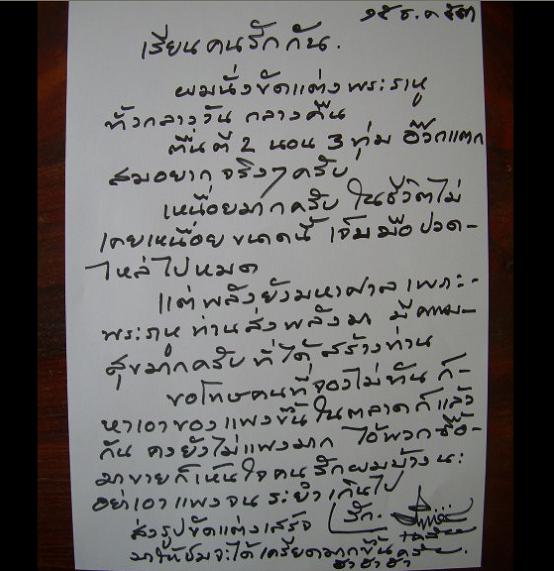 ๑๕ ธ.ค ๕๓
เรียนคนรักกัน.
ผมนั่งขัดแต่งพระราหู
ทั้งกลางวัน กลางคืน
ตื่นตี 2 นอน 3 ทุ่ม อ๊วกแตก
สมอยากจริงๆครับ
เหนื่อยมากครับ ในชีวิตไม่
เคยเหนื่อยขนาดนี้ เจ็บมือปวด-
ไหล่ไปหมด
แต่พลังยังมหาศาล เพราะ-
พระราหู ท่านส่งพลังมา มีความ-
สุขมากครับที่ได้สร้างท่าน
ขอโทษคนที่จองไม่ทัน ก็-
หาเอาของแพงขึ้นในตลาดก็แล้ว
กัน คงยังไม่แพงมาก ไอ้พวกซื้อ-
มาขายก็เห็นใจคนรักผมบ้างนะ
อย่าเอาแพงจนระยำเกินไป
ส่งรูปขัดแต่งเสร็จ รัก.
มาให้ชมจะได้เครียดมากขึ้น
ฮ่าฮ่าฮ่า